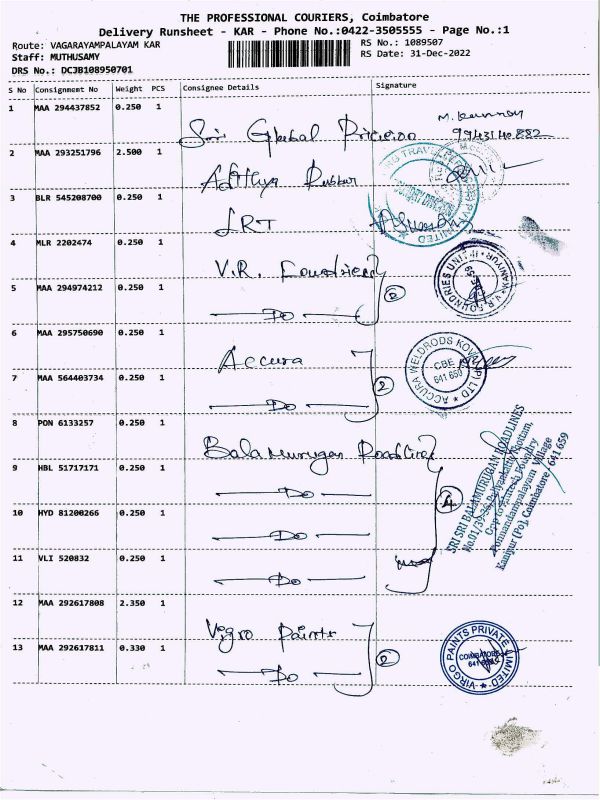 THE PROFESSIONAL COURIERS, Coimbatore
Delivery Runsheet - KAR - Phone No.:0422-3505555 - Page No.:1
Route: VAGARAYAMPALAYAM KAR
Staff: MUTHUSAMY
DRS No.: DCJB108950701
RS No.: 1089507
RS Date: 31-Dec-2022
S No Consignment No Weight PCS Consignee Details Signature
1 MAA 294437852 0.250 1 Sri Global
99431 40 882
2 MAA 293251796 2.500 1 Adithya Rubber
3 BLR 545208700 0.250 1 LRT
4 MLR 2202474 0.250 1 V.R. Foundries
5 MAA 294974212 0.250 1 Do
V.R. FOUNDRIES UNIT-II
6 MAA 295750690 0.250 1 Accura
7 MAA 564403734 0.250 1 Do 2
ACCURA WELDRODS KOVAI (P) LTD
CBE
641 659
8 PON 6133257 0.250 1 Balamurugan Roadlines
9 HBL 51717171 0.250 1 Do
10 HYD 81200266 0.250 1 Do 4
11 VLI 520832 0.250 1 Do
SRI SRI BALAMURUGAN ROADLINES
Ponnandampalayam Village
Kanjur (Po), Coimbatore - 641 659
12 MAA 292617808 2.350 1 Virgo Paints
13 MAA 292617811 0.330 1 Do
VIRGO PAINTS PRIVATE LIMITED
COIMBATORE